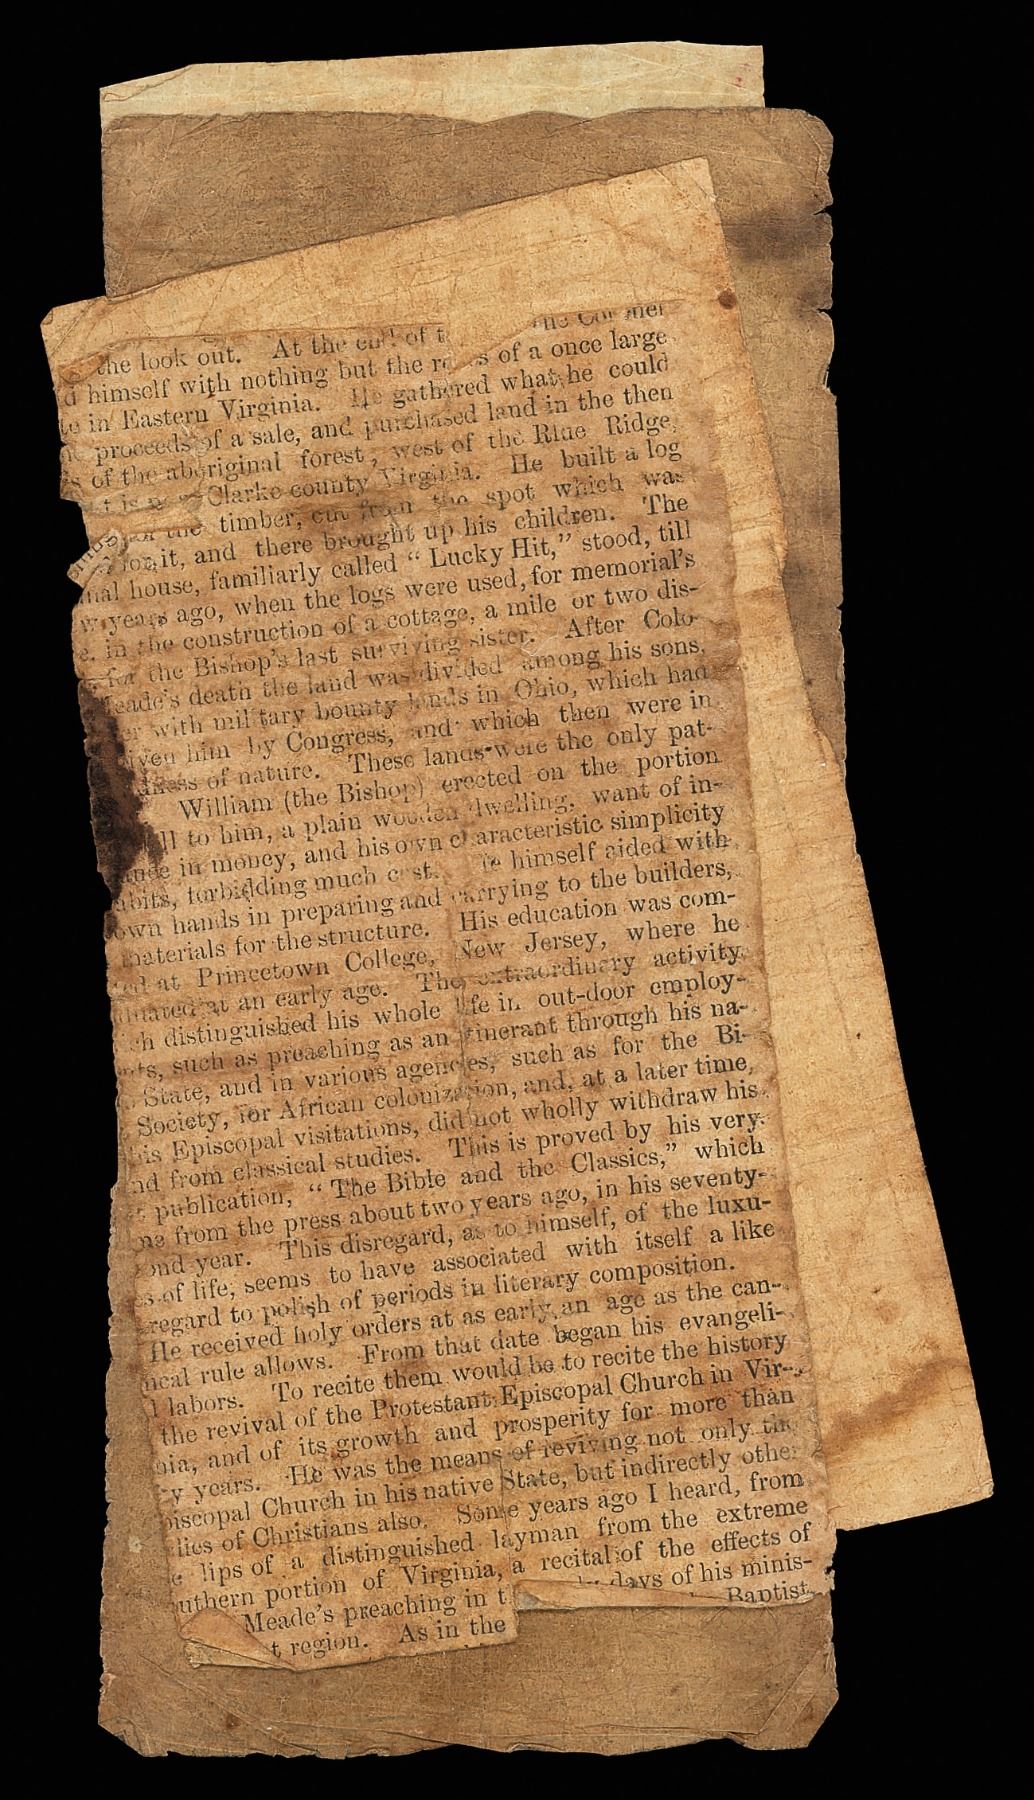 the look out. At the end of t
himself with nothing but the of a once large
in Eastern Virginia. He gathered what he could
proceeds of a sale, and purchased land in the then
of the aboriginal forest, west of the Blue Ridge,
t is Clarke county Virginia. He built a log
the timber, cut from the spot which was
on it, and there brought up his children. The
nal house, familiarly called “Lucky Hit,” stood, till
w years ago, when the logs were used, for memorial's
e, in the construction of a cottage, a mile or two dis-
for the Bishop's last surviving sister. After Colo-
eade's death the land was divided among his sons,
er with military bounty lands in Ohio, which had
iven him by Congress, and which then were in
dness of nature. These lands were the only pat-
William (the Bishop) erected on the portion
ll to him, a plain wooden dwelling, want of in-
ance in money, and his own characteristic simplicity
abits, forbidding much cost. He himself aided with
own hands in preparing and carrying to the builders,
materials for the structure. His education was com-
ed at Princetown College, New Jersey, where he
duated at an early age. The extraordinary activity
ch distinguished his whole life in out-door employ-
nts, such as preaching as an itinerant through his na-
State, and in various agencies, such as for the Bi-
Society, for African colonization, and, at a later time,
his Episcopal visitations, did not wholly withdraw his
nd from classical studies. This is proved by his very
publication, “The Bible and the Classics,” which
me from the press about two years ago, in his seventy-
ond year. This disregard, as to himself, of the luxu-
es of life, seems to have associated with itself a like
regard to polish of periods in literary composition.
He received holy orders at as early an age as the can-
nical rule allows. From that date began his evangeli-
l labors. To recite them would be to recite the history
the revival of the Protestant Episcopal Church in Vir-
nia, and of its growth and prosperity for more than
y years. He was the means of reviving not only the
piscopal Church in his native State, but indirectly other
lies of Christians also. Some years ago I heard, from
e lips of a distinguished layman from the extreme
uthern portion of Virginia, a recital of the effects of
Meade's preaching in t days of his minis-
t region. As in the Baptist